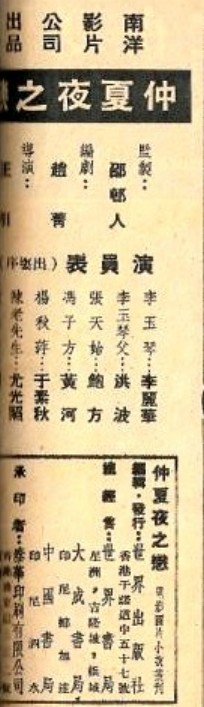 南洋影片公司出品
仲夏夜之戀
監製：邵邨人
編劇：趙菁
導演：
演員表（出塲序）
李玉琴…李麗華
李玉琴父…洪波
張天始…鮑方
馮子方…黃河
楊秋萍…于素秋
陳老先生…尤光照
仲夏夜之戀
電影圖片小說叢刊
編輯·發行：世界出版社
香港干諾道中五十七號
總經售：世界書局
星洲·吉隆坡·檳城
大成書局
印尼椰加達
中國書局
印尼泗水
承印者：印刷有限公司